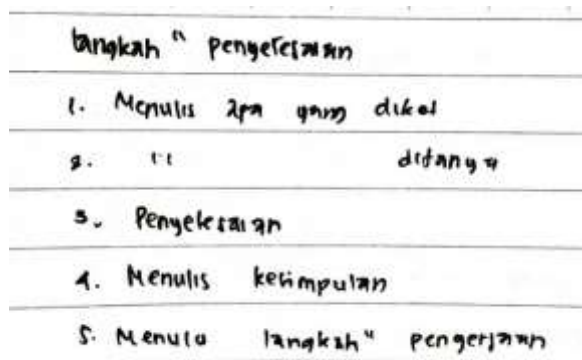 langkah" pengelesaian
1. Menulis apa yang diket
2. " ditanya
3. Penyelesaian
4. Menulis kesimpulan
5. Menulis langkah" pengerjaan